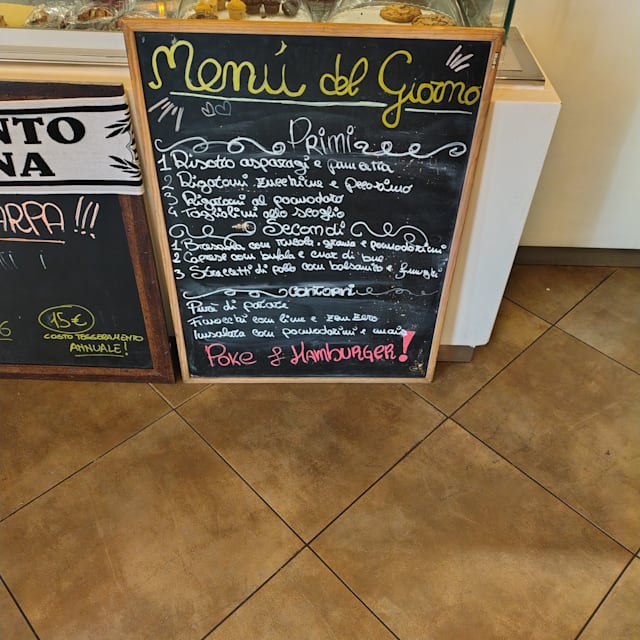 Menú del Giorno
Primi
1 Risotto asparagi e pancetta
2 Rigatoni zucchine e pecorino
3 Rigatoni al pomodoro
4 Tagliolini allo scoglio
Secondi
1 Bresaola con rucola, grana e pomodorini
2 Caprese con bufala e cuor di bue
3 Straccetti di pollo con balsamico e funghi
Contorni
Purè di patate
Finocchi con lime e zenzero
Insalata con pomodorini e mais
Poke & Hamburger!
NTO
NA
ARPA !!!
6
15€
COSTO TESSERAMENTO
ANNUALE!